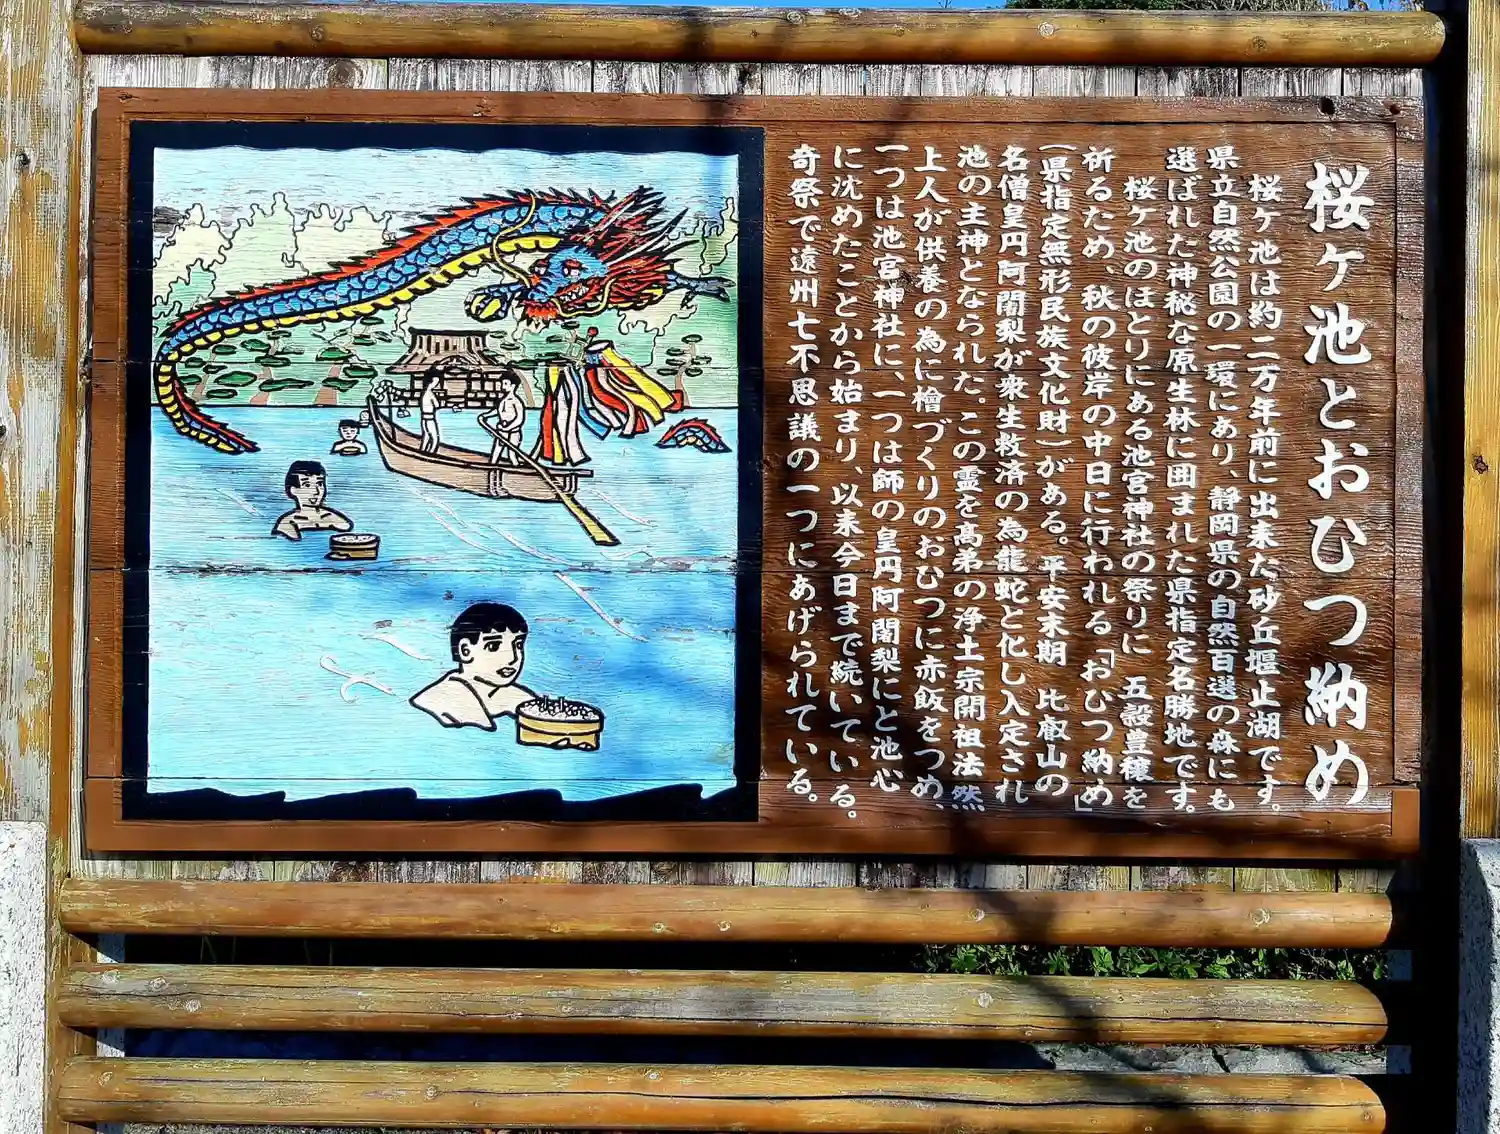 桜ヶ池とおひつ納め
桜ヶ池は約二万年前に出来た砂丘堰止湖です。
県立自然公園の一環にあり、静岡県の自然百選の森にも
選ばれた神秘な原生林に囲まれた県指定名勝地です。
桜ヶ池のほとりにある池宮神社の祭りに 五穀豊穣を
祈るため、秋の彼岸の中日に行われる「おひつ納め」
(県指定無形民族文化財)がある。平安末期 比叡山の
名僧皇円阿闍梨が衆生救済の為龍蛇と化し入定され
池の主神となられた。この霊を高弟の浄土宗開祖法然
上人が供養の為に檜づくりのおひつに赤飯をつめ、
一つは池宮神社に、一つは師の皇円阿闍梨にと池心
に沈めたことから始まり、以来今日まで続いている。
奇祭で遠州七不思議の一つにあげられている。